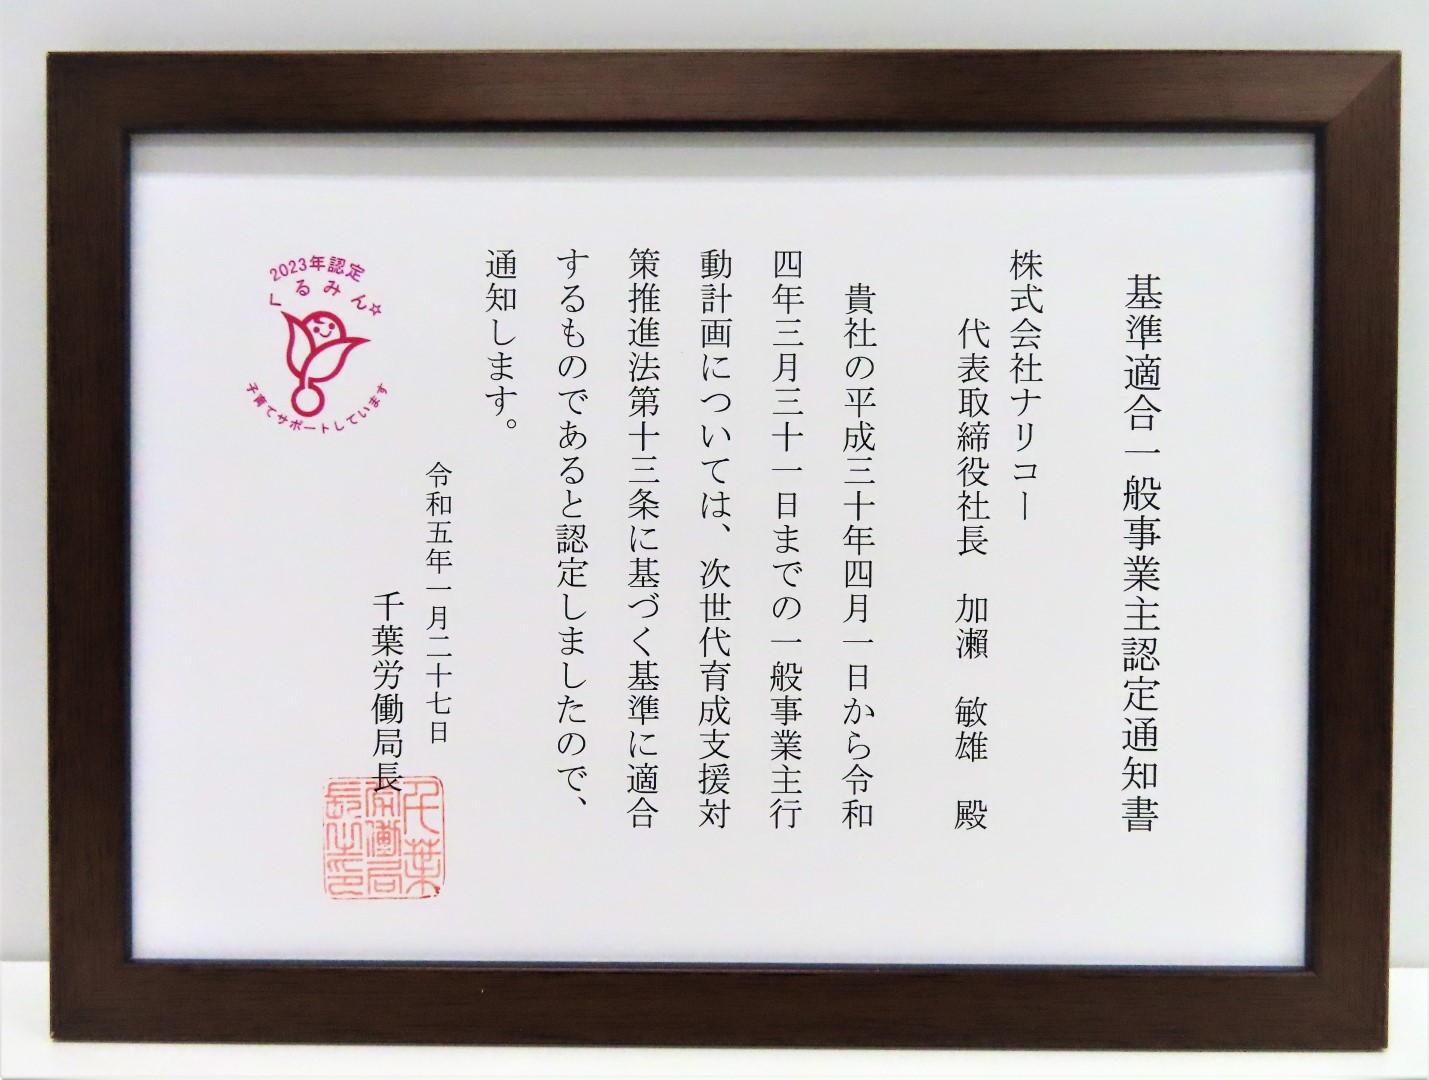 基準適合一般事業主認定通知書
株式会社ナリコー
代表取締役社長 加瀬 敏雄 殿
貴社の平成三十年四月一日から令和
四年三月三十一日までの一般事業主行
動計画については、次世代育成支援対
策推進法第十三条に基づく基準に適合
するものであると認定しましたので、
通知します。
令和五年一月二十七日
千葉労働局長
千葉
労働局
長之印
2023年認定
くるみん☆
子育てサポートしています